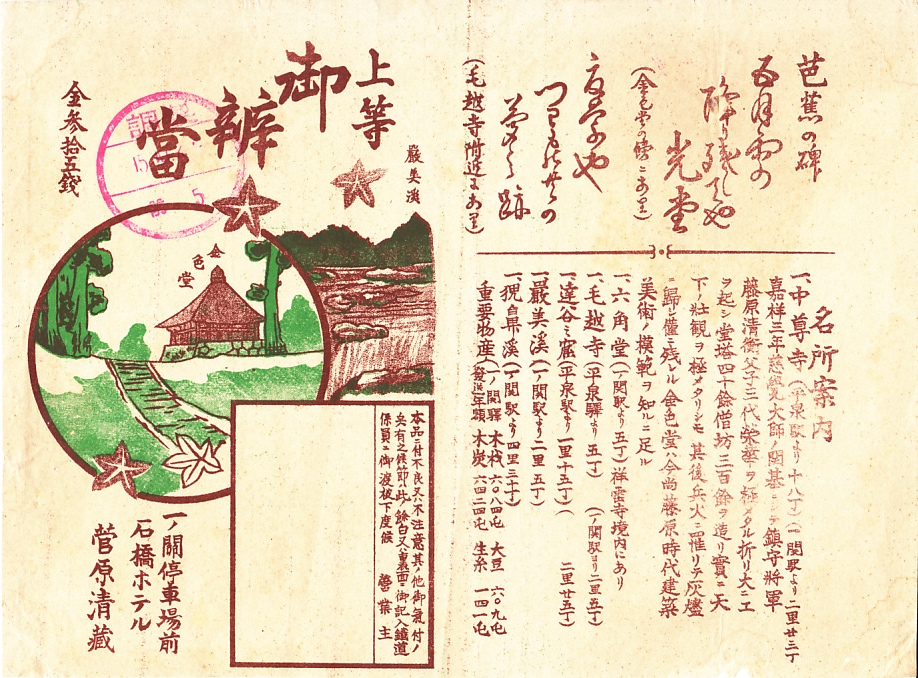 芭蕉の碑
五月雨の
降り残してや
光堂
(金色堂の傍ニあり)
夏草や
つはものどもの
夢の跡
(毛越寺附近にあり)
名所案内
一、中尊寺(平泉駅より十八丁)(一ノ関駅より二里廿三丁
嘉祥三年慈覚大師ノ開基ニシテ鎮守将軍
藤原清衡父子三代栄華ヲ極メタル折リ大ニ工
ヲ起シ堂塔四十餘僧坊三百餘ヲ造リ實ニ天
下ノ壮観ヲ極メタリシモ其後兵火ニ罹リテ灰燼
ニ歸シ僅ニ残レル金色堂ハ今尚藤原時代建築
美術ノ模範ヲ知ルニ足ル
一、六角堂(一ノ関駅より五丁)祥雲寺境内にあり
一、毛越寺(平泉驛より五丁)(一ノ関駅ヨリ二里五丁)
一、達谷ノ窟(平泉駅より一里十五丁)(二里廿五丁)
一、巖美溪(一ノ関駅より二里五丁)
一、猊鼻溪(一ノ関駅より四里三十丁)
重要物産(一ノ関驛発送年額)木材六〇八四屯 大豆六〇九屯
木炭六四二四屯 生糸一四一屯
上等
御辨當
金参拾五錢
巖美溪
金色堂
本品ニ付不良又ハ不注意其ノ他御氣付ノ
点有之候節ハ此ノ餘白又ハ裏面ニ御記入鐵道
係員ニ御渡被下度候 營業主
一ノ關停車場前
石橋ホテル
菅原清藏
調
5